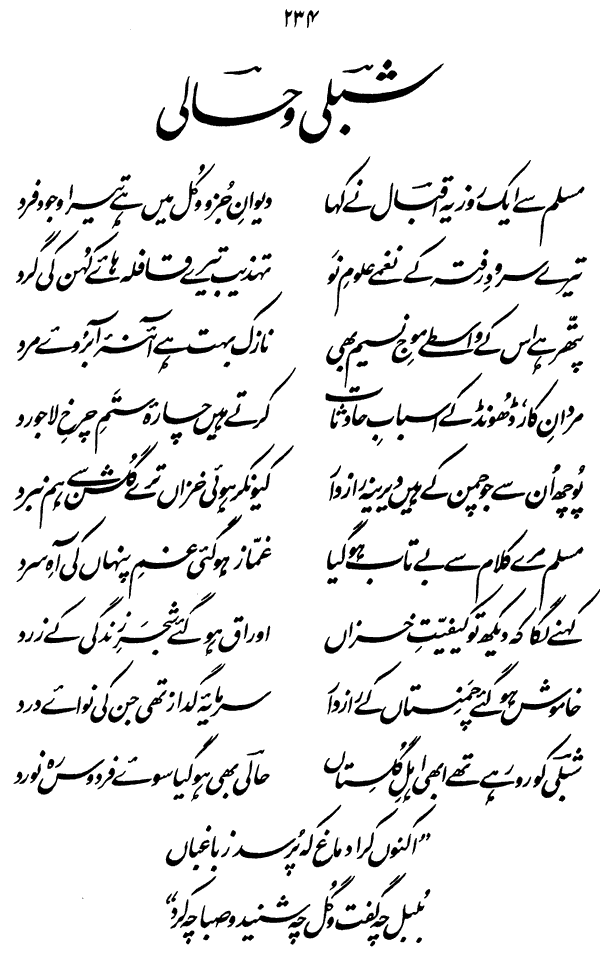 ۲۳۴
شبلیؔ و حالیؔ
مسلم سے ایک روز یہ اقبالؔ نے کہا دیوانِ جُزو و کُل میں ہے تیرا وجود فرد
تیرے سرودِ رفتہ کے نغمے علومِ نَو تہذیب تیرے قافلہ ہائے کُہن کی گرد
پتھر ہے اس کے واسطے موجِ نسیم بھی نازک بہت ہے آئنۂ آبروئے مرد
مردانِ کار، ڈھُونڈ کے اسبابِ حادثات کرتے ہیں چارۂ ستمِ چرخِ لاجورد
پُوچھ اُن سے جو چمن کے ہیں دیرینہ رازدار کیونکر ہوئی خزاں ترے گُلشن سے ہم نبرد
مسلم مرے کلام سے بے تاب ہوگیا غمّاز ہوگئی غمِ پنہاں کی آہِ سرد
کہنے لگا کہ دیکھ تو کیفیّتِ خزاں اوراق ہو گئے شجَرِ زندگی کے زرد
خاموش ہو گئے چَمنِستاں کے رازدار سرمایۂ گداز تھی جن کی نوائے درد
شبلیؔ کو رو رہے تھے ابھی اہلِ گُلِستاں حالیؔ بھی ہوگیا سوئے فردوس رہ نورد
”اکنوں کرا دماغ کہ پُرسد ز باغباں
بُلبل چہ گفت و گُل چہ شنید و صبا چہ کرد“